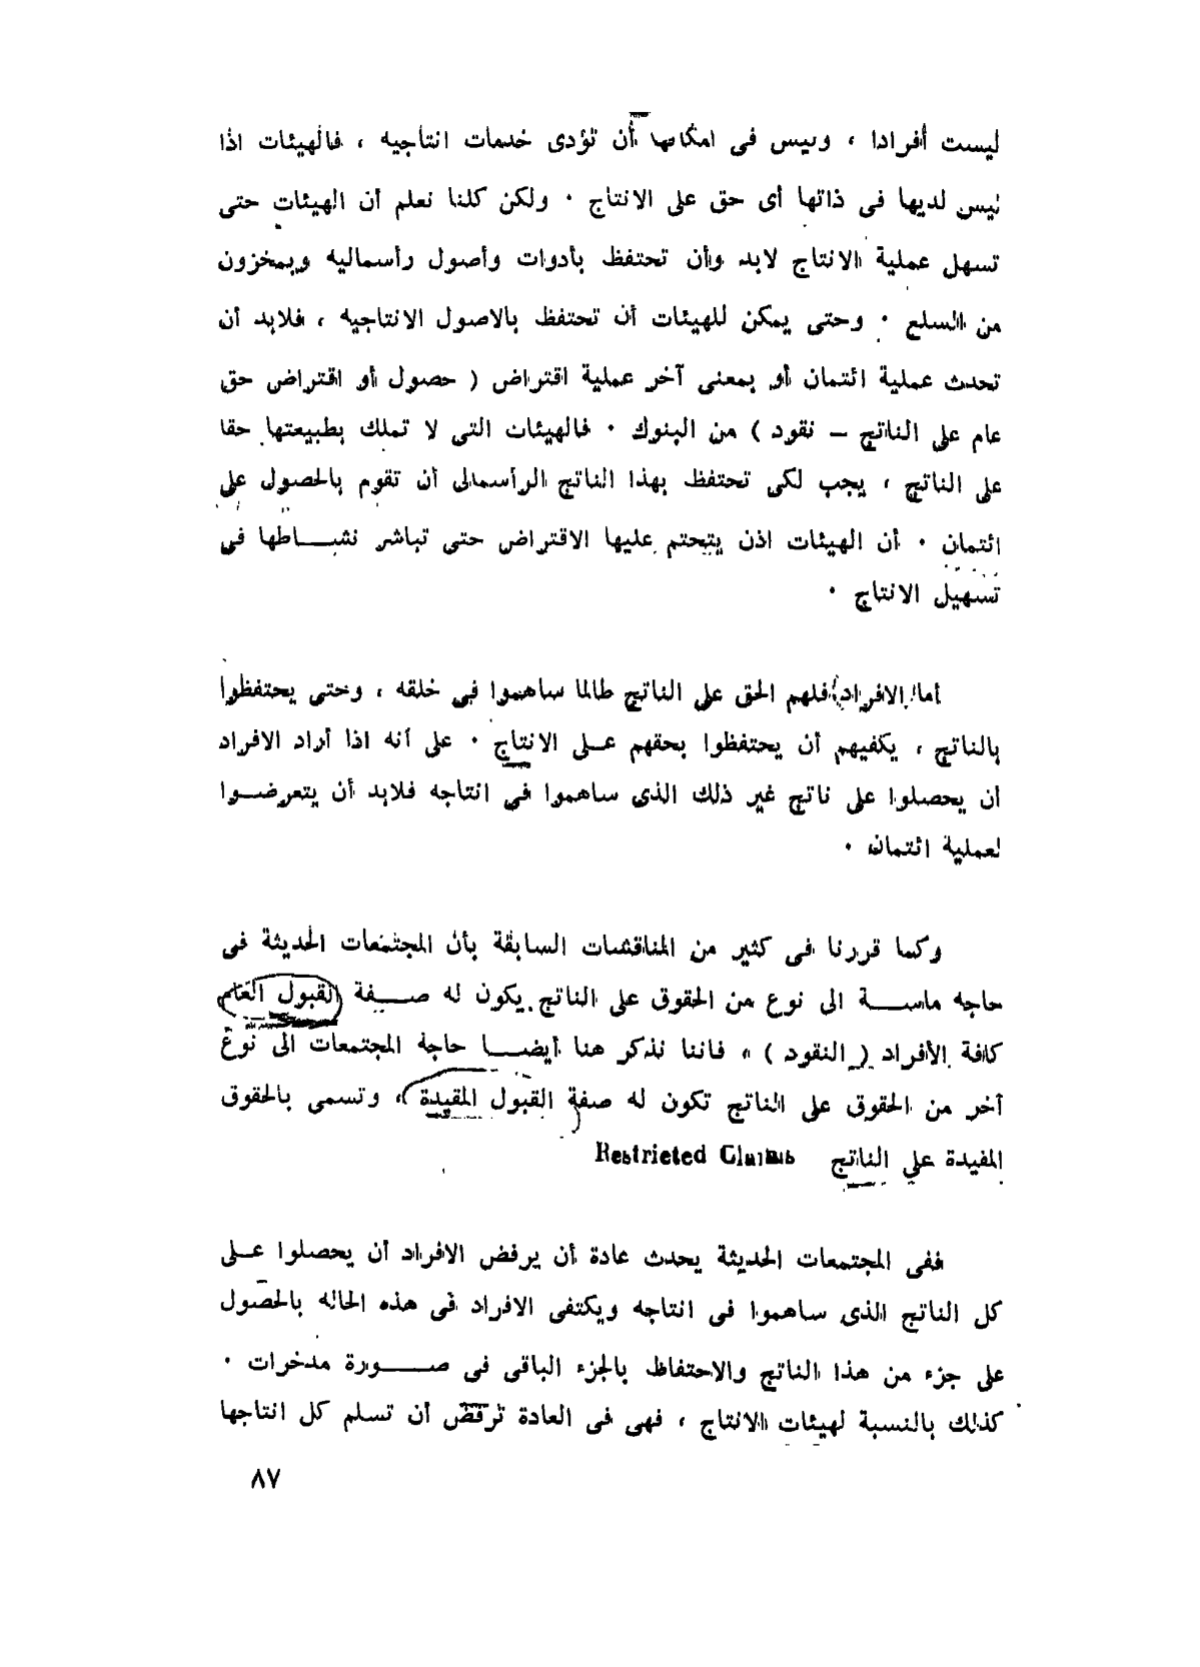 ليست أفرادا ، وليس فى امكانها أن تؤدى خدمات انتاجيه ، فالهيئات اذا
ليس لديها فى ذاتها أى حق على الانتاج . ولكن كلنا نعلم أن الهيئات حتى
تسهل عملية الانتاج لابد وأن تحتفظ بأدوات وأصول رأسماليه وبمخزون
من السلع . وحتى يمكن للهيئات أن تحتفظ بالاصول الانتاجيه ، فلابد أن
تحدث عملية ائتمان أو بمعنى آخر عملية اقتراض ( حصول أو اقتراض حق
عام على الناتج – نقود ) من البنوك . فالهيئات التى لا تملك بطبيعتها حقا
على الناتج ، يجب لكى تحتفظ بهذا الناتج الرأسمالى أن تقوم بالحصول على
ائتمان . أن الهيئات اذن يتحتم عليها الاقتراض حتى تباشر نشـــاطها فى
تسهيل الانتاج .
أما الافراد فلهم الحق على الناتج طالما ساهموا فى خلقه ، وحتى يحتفظوا
بالناتج ، يكفيهم أن يحتفظوا بحقهم عـلى الانتاج . على أنه اذا أراد الافراد
أن يحصلوا على ناتج غير ذلك الذى ساهموا فى انتاجه فلابد أن يتعرضـوا
لعملية ائتمان .
وكما قررنا فى كثير من المناقشات السابقة بأن المجتمعات الحديثة فى
حاجه ماســـة الى نوع من الحقوق على الناتج يكون له صـــفة القبول العام
كافة الأفراد ( النقود ) ، فاننا نذكر هنا أيضـــا حاجة المجتمعات الى نوع
آخر من الحقوق على الناتج تكون له صفة القبول المقيدة ، وتسمى بالحقوق
المفيدة على الناتج Restrieted Claims
ففى المجتمعات الحديثة يحدث عادة أن يرفض الافراد أن يحصلوا عـلى
كل الناتج الذى ساهموا فى انتاجه ويكتفى الافراد فى هذه الحاله بالحصول
على جزء من هذا الناتج والاحتفاظ بالجزء الباقى فى صـــورة مدخرات .
كذلك بالنسبة لهيئات الانتاج ، فهى فى العادة ترفض أن تسلم كل انتاجها
٨٧